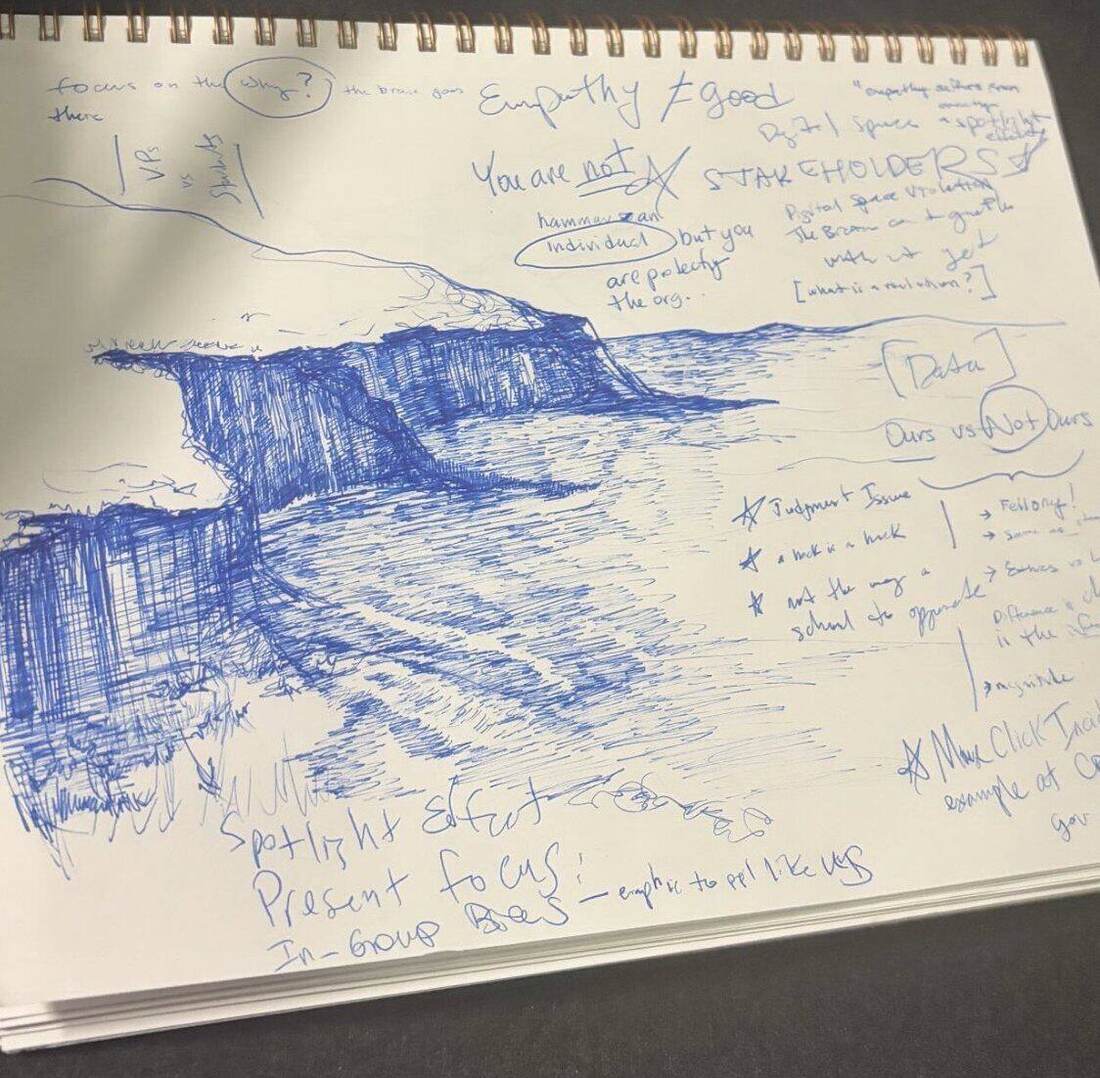 focus on the why? the brain goes
there
VPs
vs
Students
Empathy ≠ good
You are not
hammer an
individual but you
are protecting
the org..
"empathy suffers from
a spotlight
Digital Space
STAKEHOLDERS
Digital Space Violation
The Brain can't
with it yet
[what is a violation?]
[Data]
Ours vs Not Ours
Judgment Issue
a hack is a hack
not the way a
school to opperate
Fellony!
same as
Ethics vs
Difference
is the
magnitude
Click
example at
gov
Spotlight Effect
Present focus!
In-Group Bias — emphic to ppl like US